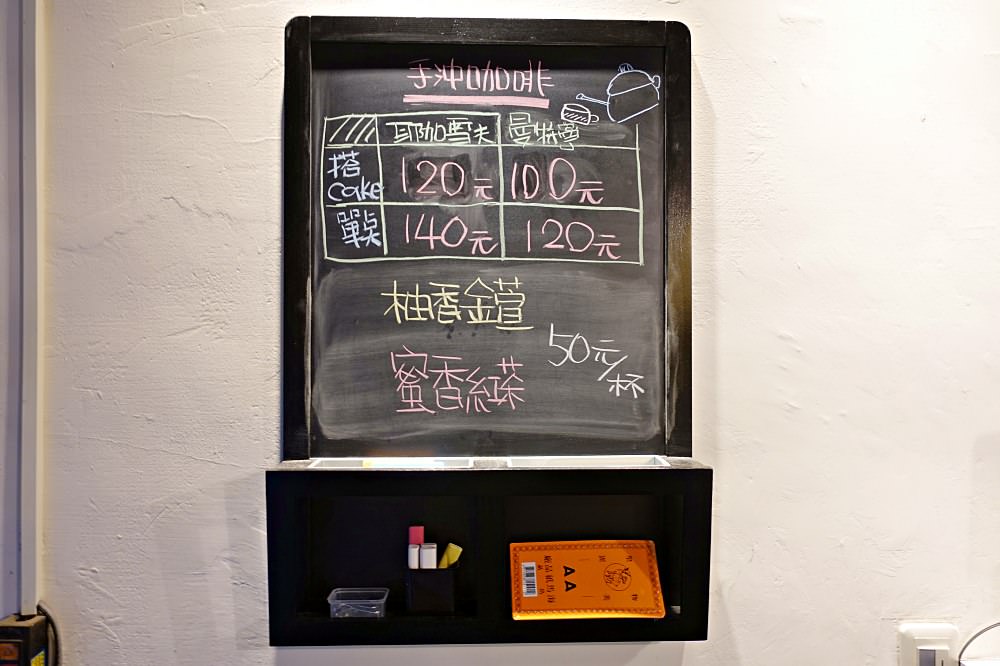 手沖咖啡
耶加雪夫 曼特寧
搭cake 120元 100元
單点 140元 120元
柚香金萱
50元/杯
蜜香紅茶
AA